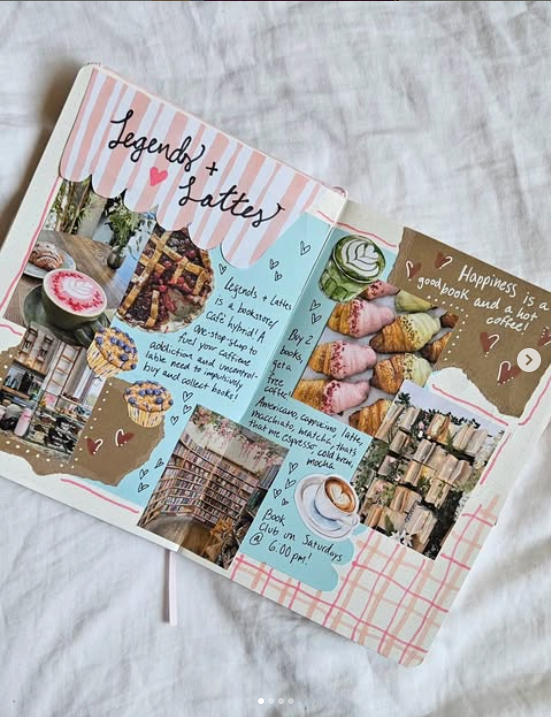 Legends +
Lattes
legends + lattes
is a bookstore/
Cafe hybrid! A
one-stop-shop to
fuel your caffeine
addiction and uncontrol-
lable need to impulsively
buy and collect books!
Buy 2
books,
get a
free
coffee!
Americano, cappucino, latte,
macchiato, matcha, that's
that me espresso, cold brew,
mocha
Book
Club on Saturdays
@ 6:00 pm!
Happiness is a
good book and a hot
coffee!